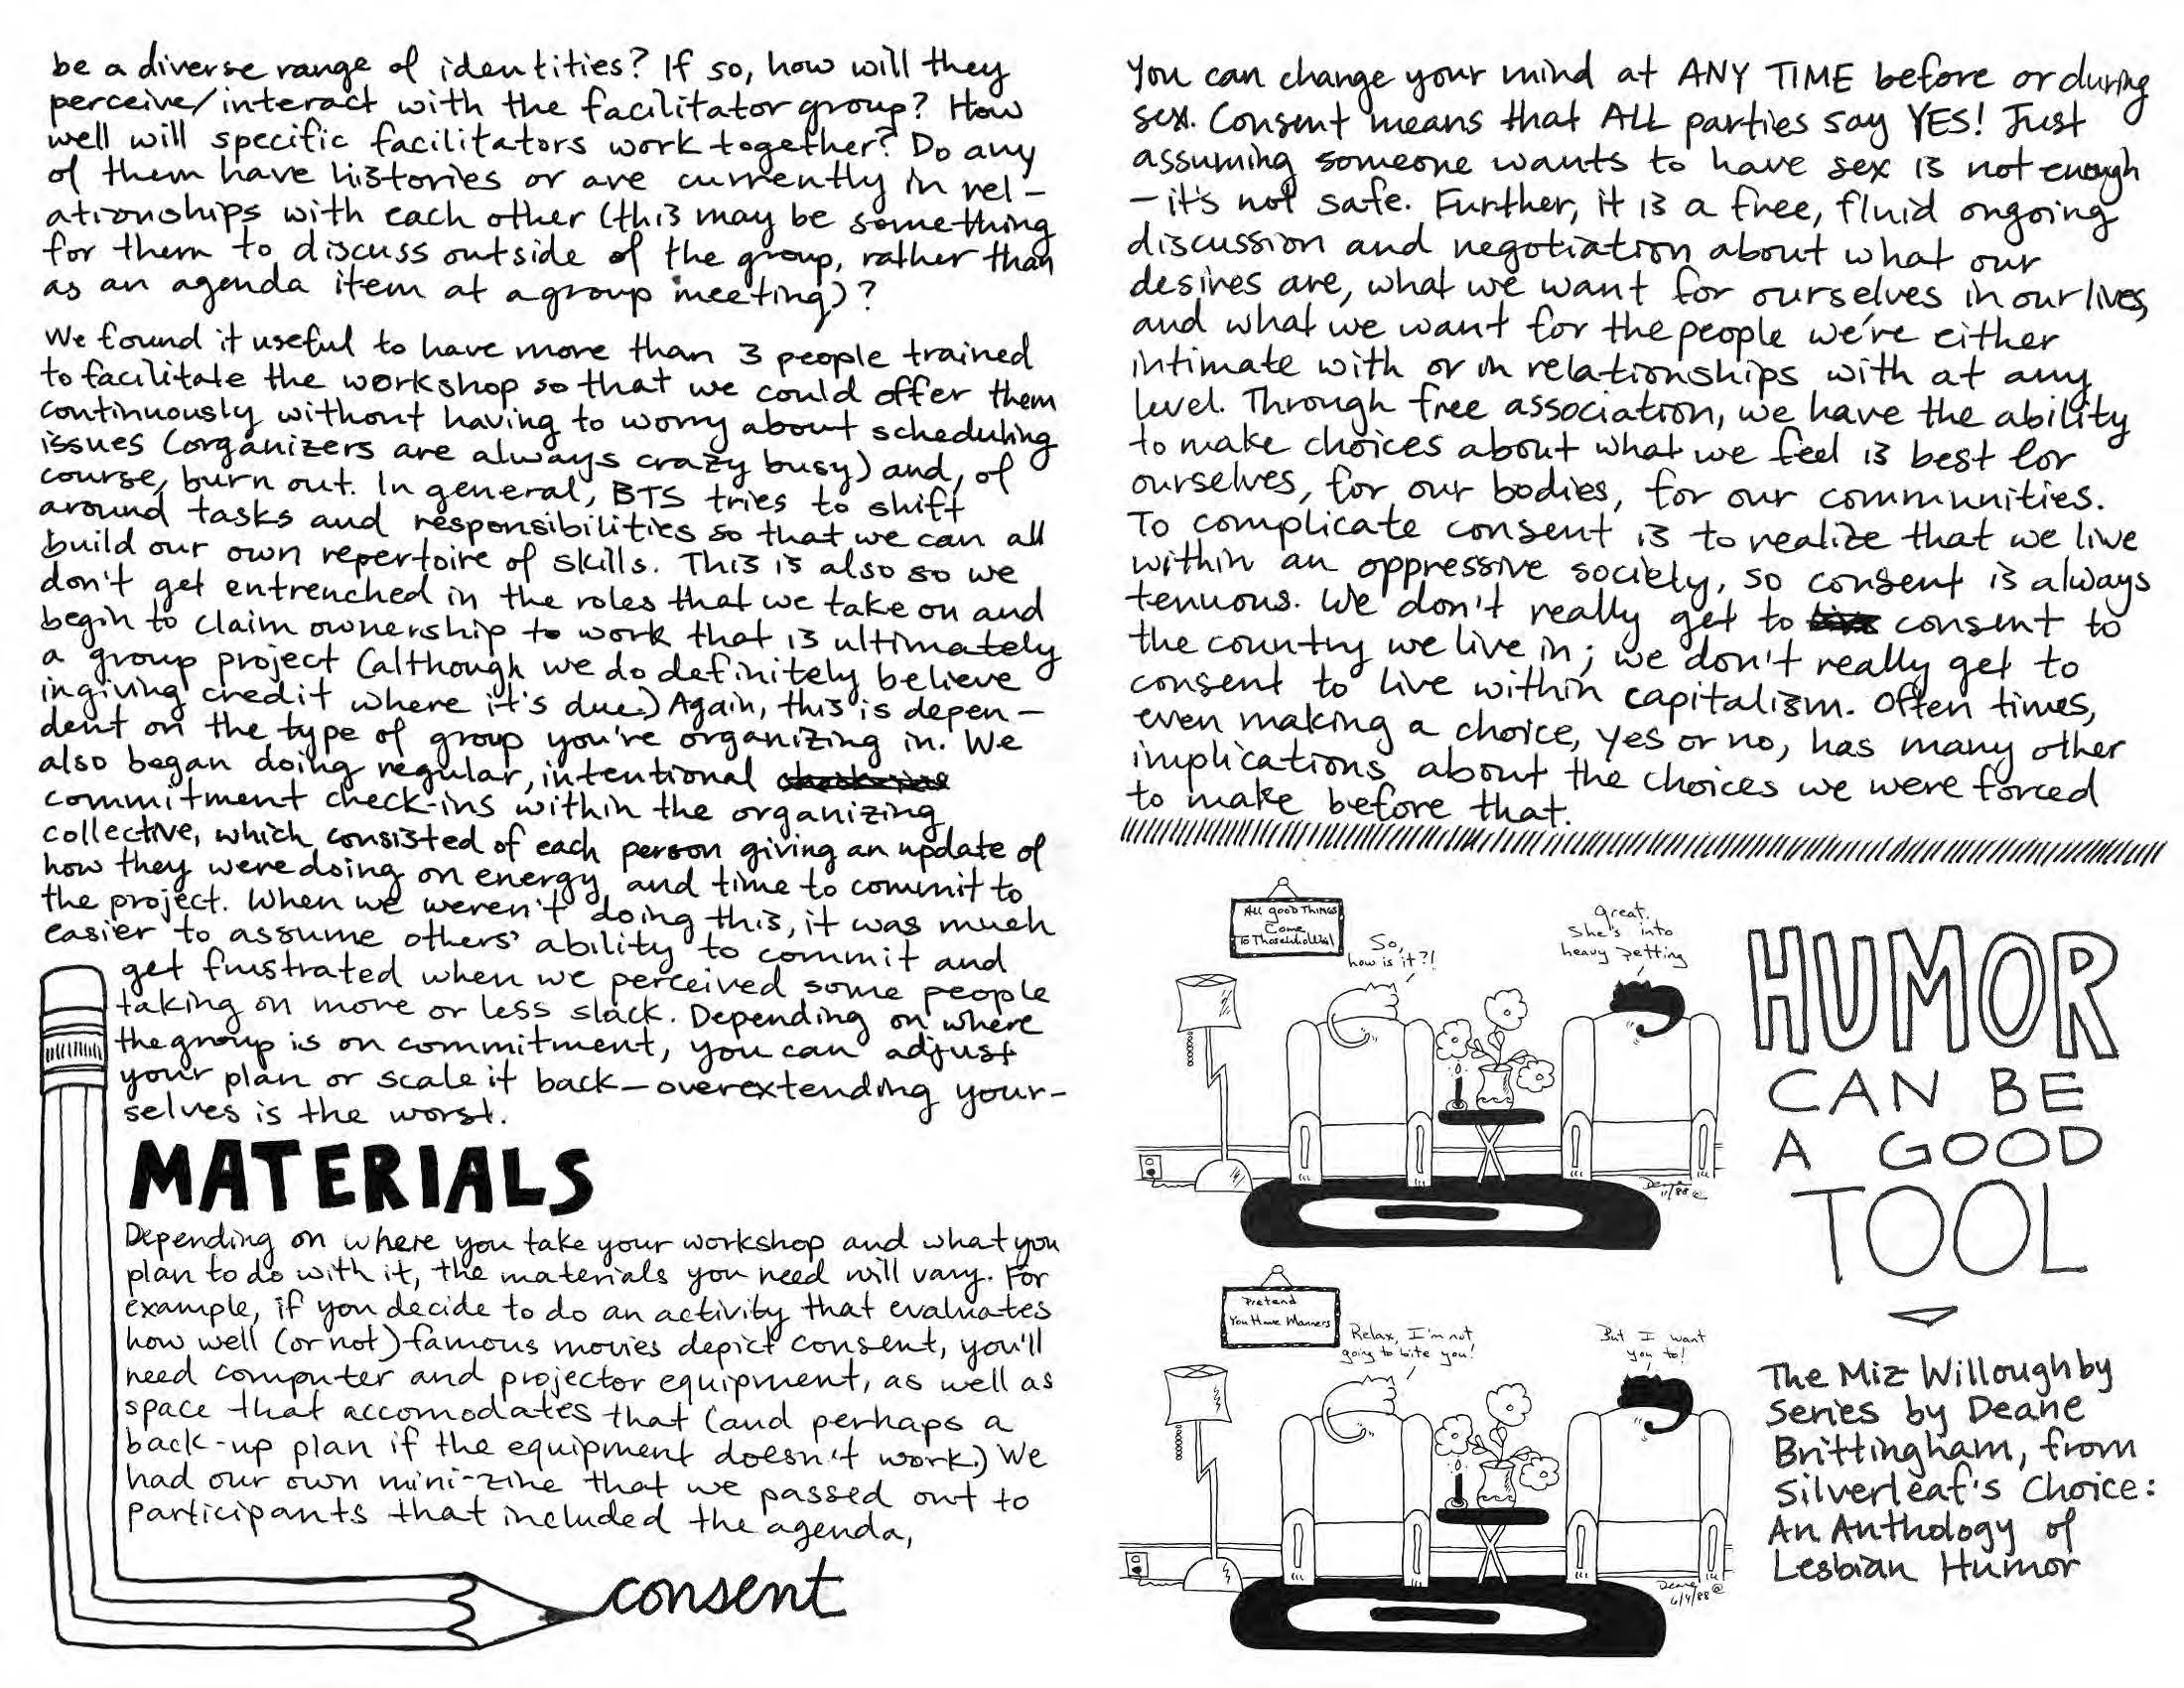 be a diverse range of identities? If so, how will they
perceive/interact with the facilitator group? How
well will specific facilitators work together? Do any
of them have histories or are currently in rel-
ationships with each other (this may be something
for them to discuss outside of the group, rather than
as an agenda item at a group meeting)?
We found it useful to have more than 3 people trained
to facilitate the workshop so that we could offer them
continuously without having to worry about scheduling
issues (organizers are always crazy busy) and, of
course, burn out. In general, BTS tries to shift
around tasks and responsibilities so that we can all
build our own repertoire of skills. This is also so we
don't get entrenched in the roles that we take on and
begin to claim ownership to work that is ultimately
a group project (although we do definitely believe
in giving credit where it's due.) Again, this is depen-
dent on the type of group you're organizing in. We
also began doing regular, intentional
commitment check-ins within the organizing
collective, which consisted of each person giving an update of
how they were doing on energy and time to commit to
the project. When we weren't doing this, it was much
easier to assume others' ability to commit and
get frustrated when we perceived some people
taking on more or less slack. Depending on where
the group is on commitment, you can adjust
your plan or scale it back—overextending your-
selves is the worst.
MATERIALS
Depending on where you take your workshop and what you
plan to do with it, the materials you need will vary. For
example, if you decide to do an activity that evaluates
how well (or not) famous movies depict consent, you'll
need computer and projector equipment, as well as
space that accomodates that (and perhaps a
back-up plan if the equipment doesn't work.) We
had our own mini-zine that we passed out to
participants that included the agenda,
consent
You can change your mind at ANY TIME before or during
sex. Consent means that ALL parties say YES! Just
assuming someone wants to have sex is not enough
- it's not safe. Further, it is a free, fluid ongoing
discussion and negotiation about what our
desires are, what we want for ourselves in our lives,
and what we want for the people we're either
intimate with or in relationships with at any
level. Through free association, we have the ability
to make choices about what we feel is best for
ourselves, for our bodies, for our communities.
To complicate consent is to realize that we live
within an oppressive society, so consent is always
tenuous. We don't really get to consent to
the country we live in; we don't really get to
consent to live within capitalism. Often times,
even making a choice, yes or no, has many other
implications about the choices we were forced
to make before that.
All good Things
Come
To Those Who Wait
So,
how is it?!
Great.
She's into
heavy petting
Deane
11/88 ©
HUMOR
CAN BE
A GOOD
TOOL
Pretend
You Have Manners
Relax, I'm not
going to bite you!
But I want
you to!
Deane
6/4/88 ©
The Miz Willoughby
Series by Deane
Brittingham, from
Silverleaf's Choice:
An Anthology of
Lesbian Humor